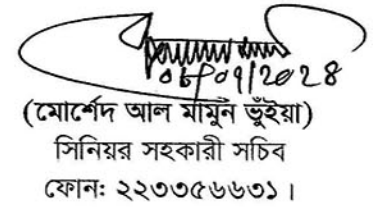 ০৮/০৭/২০২৪
(মোর্শেদ আল মামুন ভুঁইয়া)
সিনিয়র সহকারী সচিব
ফোনঃ ২২৩৩৫৬৬৩১ ।